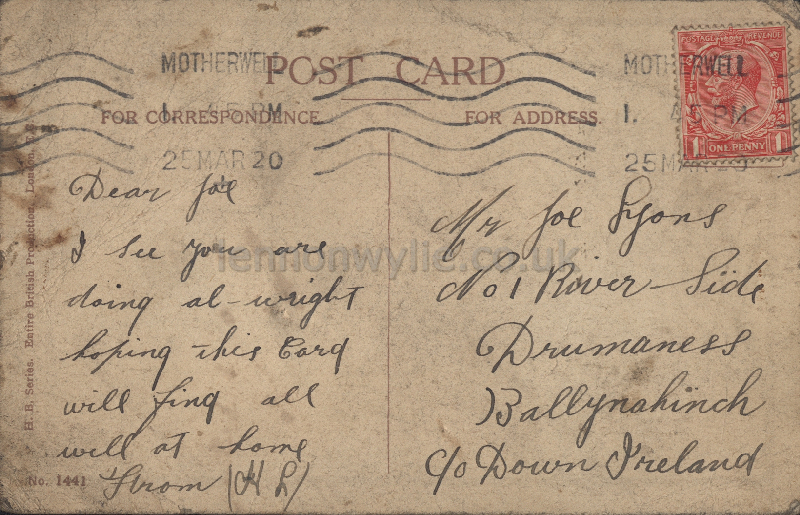 POST CARD
FOR CORRESPONDENCE
FOR ADDRESS
MOTHERWELL
1. 45 PM
25 MAR 20
MOTHERWELL
1. 4 PM
25 MAR 20
POSTAGE REVENUE
1 ONE PENNY 1
Dear Joe
I see you are
doing al-wright
hoping this Card
will find all
well at home
From (H L)
Mr Joe Lyons
No 1 River-Side
Drumaness
Ballynahinch
C/o Down Ireland
H. B. Series. Entire British Production, London, E.C.
No. 1441
lennonwylie.co.uk